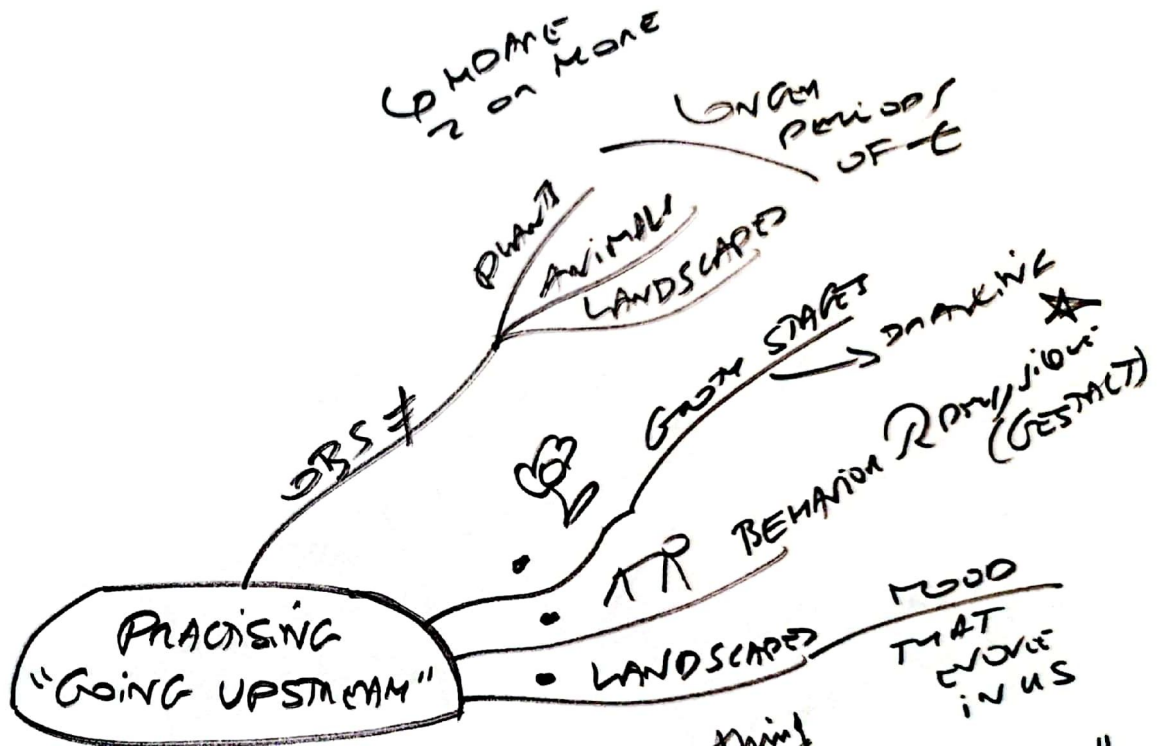 MORE
2 or MORE
LONGER
PERIODS
OF t
PLANTS
ANIMALS
LANDSCAPES
OBS ≠
GROWTH STAGES
→ DRAWING
BEHAVIOR
(GESTALT)
LANDSCAPES
MOOD
THAT
EVOKE
IN US
PRACTISING
"GOING UPSTREAM"